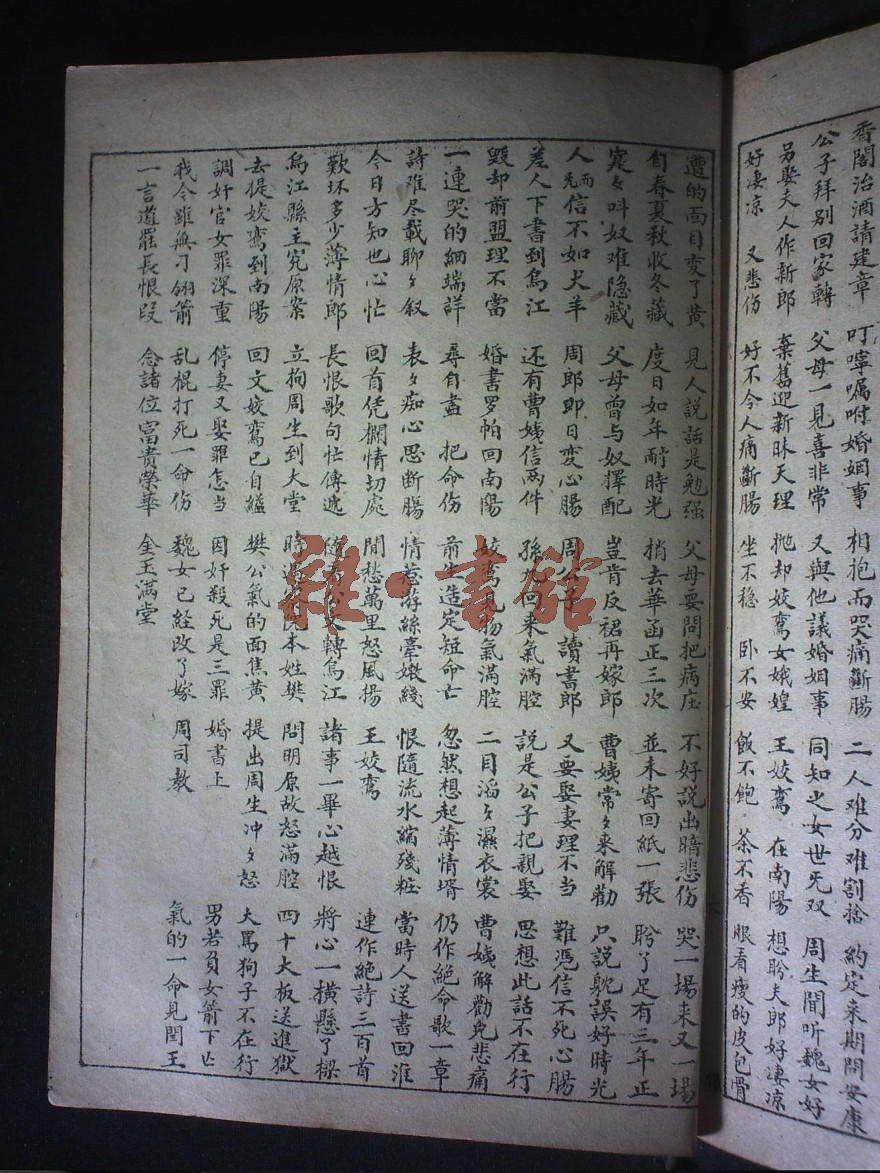 香閣治酒請建章 叮嚀囑咐婚姻事 相抱而哭痛斷腸 二人难分难割捨 約定来期問安康
公子拜别回家轉 父母一見喜非常 又與他議婚姻事 同知之女世无双 周生聞听魏女好
另娶夫人作新郎 棄舊迎新昧天理 抛却姣鸞女娥皇 王姣鸞 在南陽 想盼夫郎好凄凉
好凄凉 又悲伤 好不令人痛斷腸 坐不穩 卧不安 飯不飽 茶不香 眼看瘦的皮包骨
遭的面目变了黄 見人説話是勉强 父母要問把病庄 不好説出暗悲伤 哭一場来又一場
自春夏秋收冬藏 度日如年耐時光 捎去華函正三次 並未寄回紙一張 盼了足有三年正
寃々呌奴难隐藏 父母曾与奴擇配 豈肯反裙再嫁郎 曹姨常々来解勸 只説躭誤好時光
人而无信不如犬羊 周郎即日变心腸 周公子 讀書郎 又要娶妻理不当 難凴信不死心腸
差人下書到烏江 还有曹姨信两件 孫九回来氣满腔 説是公子把親娶 思想此話不在行
毁却前盟理不當 婚書罗帕回南陽 姣鸞見物氣滿腔 二目滔々濕衣裳 曹姨解勸免悲痛
一連哭的細端詳 尋自盡 把命伤 前生造定短命亡 忽然想起薄情壻 仍作絶命歌一章
詩难尽載聊々叙 表々痴心思断腸 情惹游絲牽嫩綫 恨隨流水縮殘粧 當時人送書回淮
今日方知也心忙 回首凭欄情切處 閒愁萬里怒風揚 王姣鸞 連作絶詩三百首
歎坏多少薄情郎 長恨歌句忙傳遞 文轉烏江 諸事一畢心越恨 將心一橫懸了樑
烏江縣主究原案 立拘周生到大堂 時 本姓樊 問明原故怒滿腔 四十大板送進獄
去提姣鸞到南陽 回文姣鸞已自縊 樊公氣的面焦黄 提出周生冲々怒 大罵狗子不在行
調奸官女罪深重 停妻又娶罪怎当 因奸殺死是三罪 婚書上 男若負女箭下亡
我今雖無刁翎箭 乱棍打死一命伤 魏女已經改了嫁 周司教 氣的一命見閆王
一言道罷長恨段 念諸位富貴榮華 金玉滿堂
雜·書館